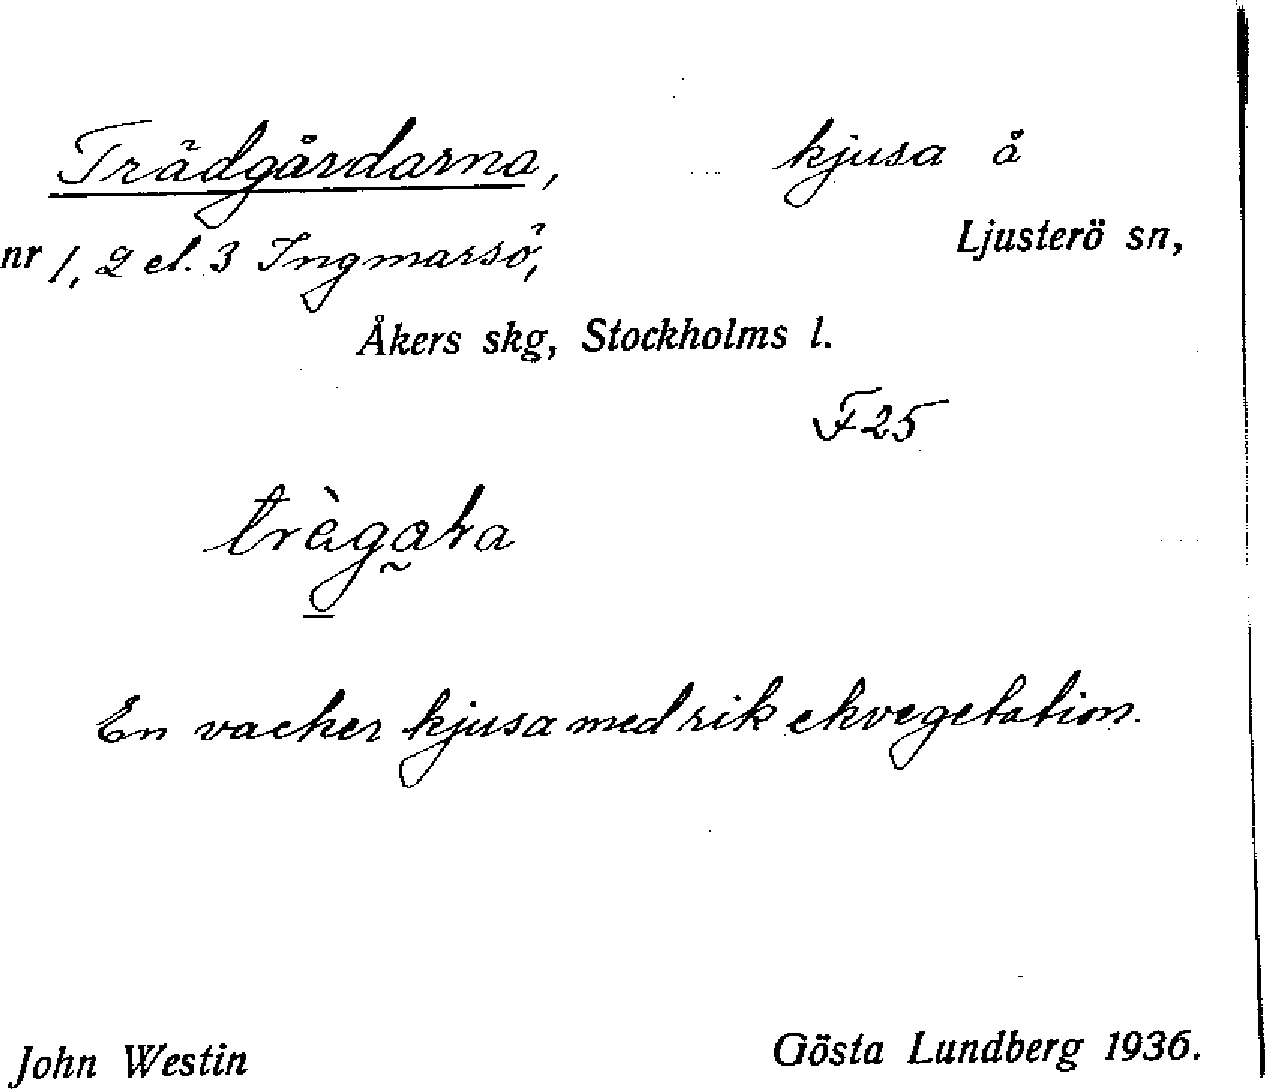 Trädgårdarna, kjusa å
nr 1, 2 el. 3 Ingmarsö, Ljusterö sn,
Åkers skg, Stockholms l.
F25
En vacker kjusa med rik ekvegetation.
John Westin Gösta Lundberg 1936.